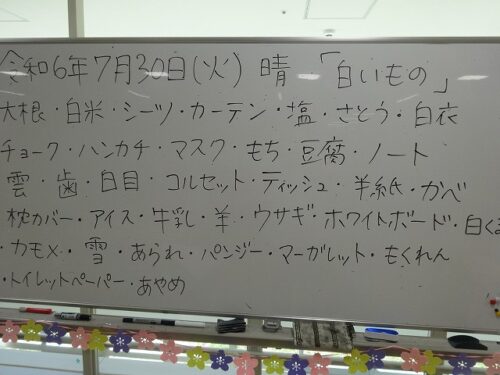 令和6年7月30日(火) 晴 「白いもの」
大根・白米・シーツ・カーテン・塩・さとう・白衣
チョーク・ハンカチ・マスク・もち・豆腐・ノート
雲・歯・白目・コルセット・ティッシュ・半紙・かべ
枕カバー・アイス・牛乳・羊・ウサギ・ホワイトボード・白く
・カモメ・雪・あられ・パンジー・マーガレット・もくれん
・トイレットペーパー・あやめ